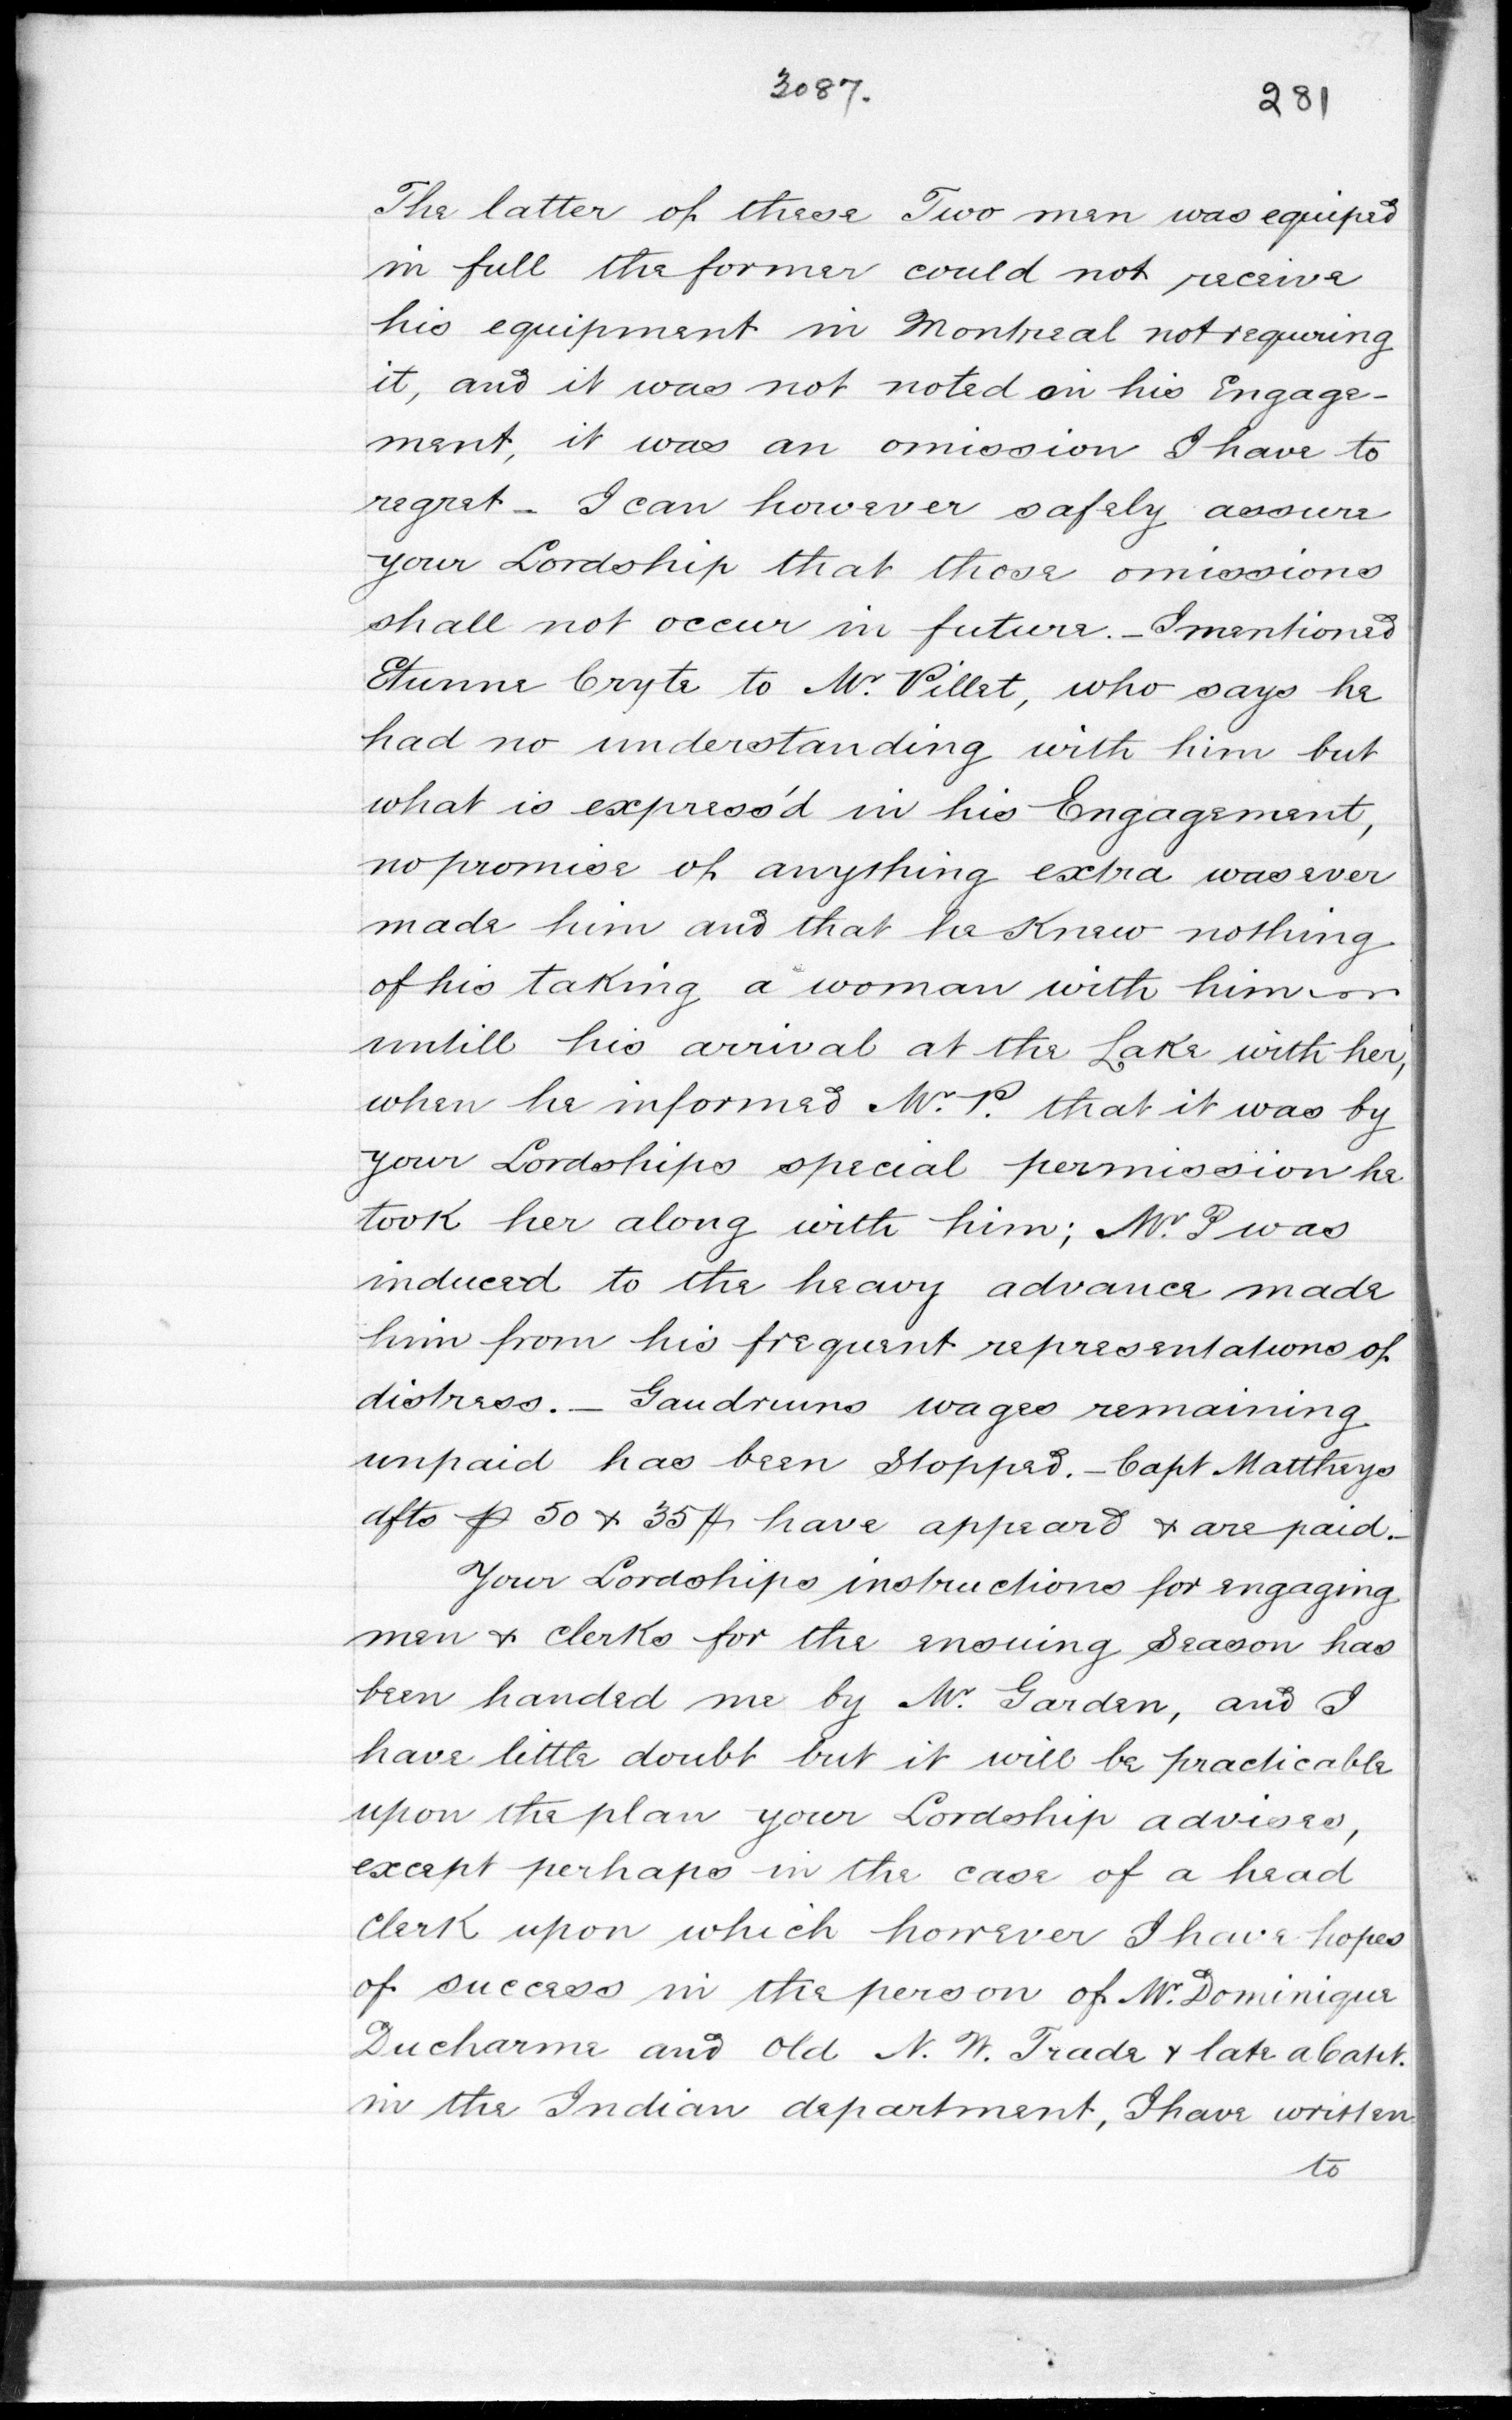 3087.
281
The latter of these Two men was equiped
in full the former could not receive
his equipment in Montreal not requiring
it, and it was not noted in his Engage-
ment, it was an omission I have to
regret - I can however safely assure
your Lordship that those omissions
shall not occur in future. - I mentioned
Etunne Cryte to Mr. Pillet, who says he
had no understanding with him but
what is express'd in his Engagement,
no promise of anything extra was ever
made him and that he Knew nothing
of his taking a woman with him
untill his arrival at the Lake with her,
when he informed Mr. P. that it was by
your Lordships special permission he
took her along with him; Mr. P was
induced to the heavy advance made
him from his frequent representations of
distress. - Gaudruins wages remaining
unpaid has been Stopped. - Capt Mattheys
dfts 50 & 35 have appeard & are paid. -
Your Lordships instructions for engaging
men & clerks for the ensuing Season has
been handed me by Mr. Garden, and I
have little doubt but it will be practicable
upon the plan your Lordship advises,
except perhaps in the case of a head
Clerk upon which however I have hopes
of success in the person of Mr. Dominique
Ducharme and Old N. W. Trade & late a Capt.
in the Indian department, I have written
to